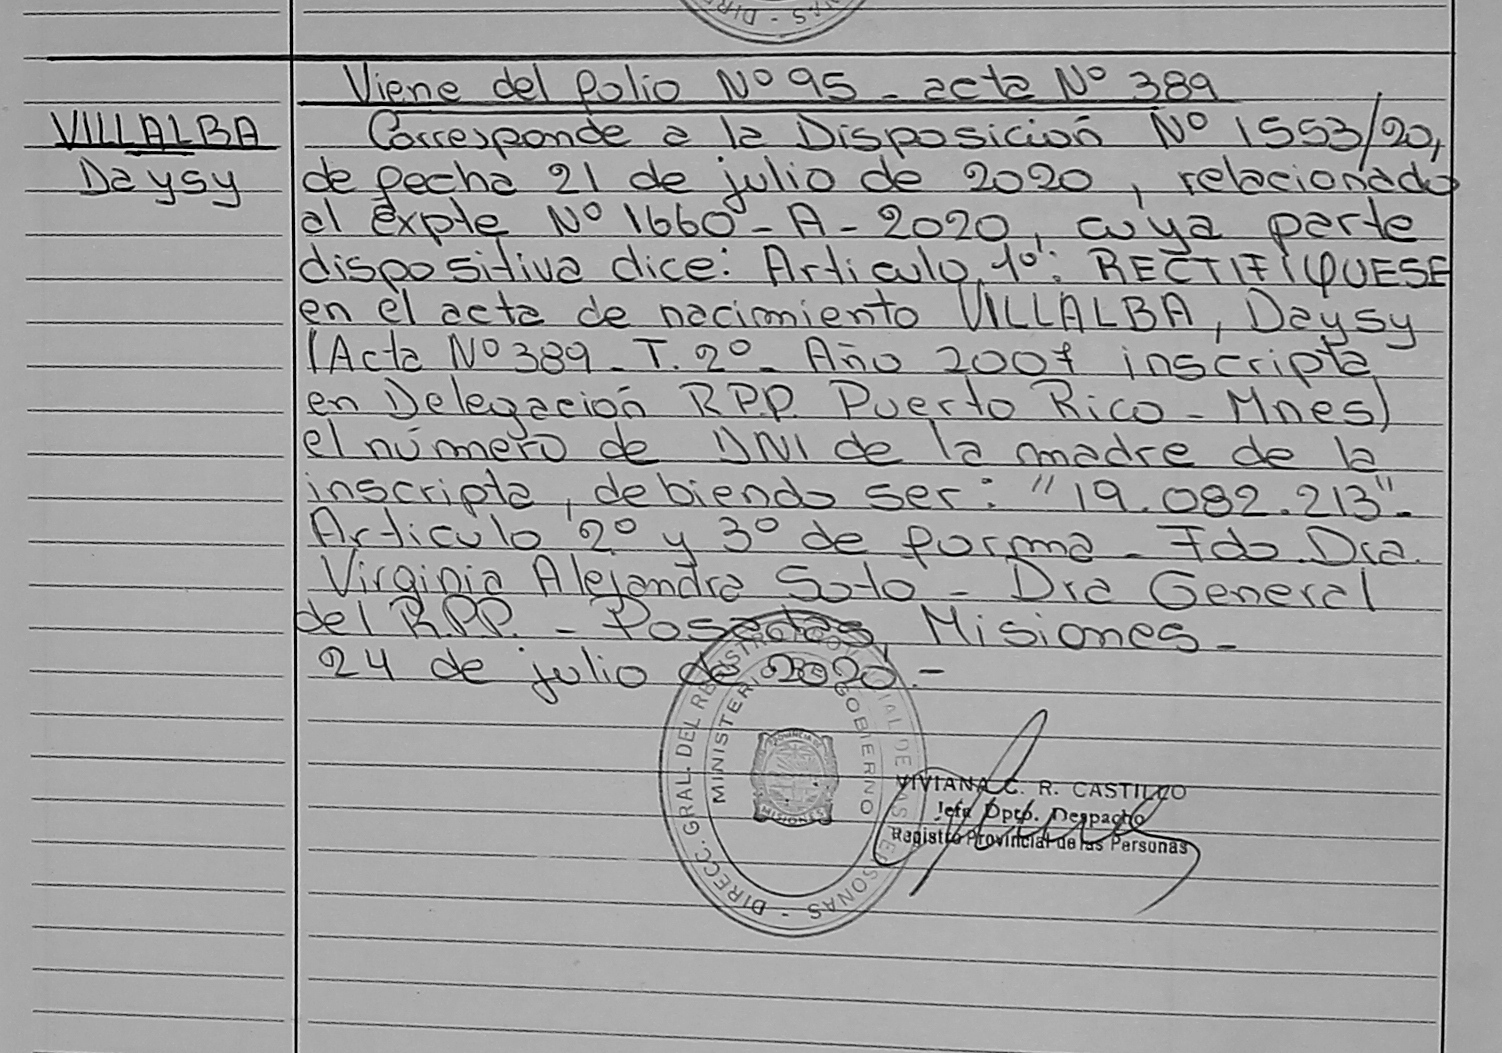 Viene del folio Nº 95 - acta Nº 389
VILLALBA
Daysy
Corresponde a la Disposición Nº 1553/20,
de fecha 21 de julio de 2020, relacionado
al expte Nº 1660 - A - 2020, cuya parte
dispositiva dice: Articulo 1º: RECTIFIQUESE
en el acta de nacimiento VILLALBA, Daysy
(Acta Nº 389 - T. 2º - Año 2007 inscripta
en Delegación R.P.P. Puerto Rico - Mnes)
el número de DNI de la madre de la
inscripta, debiendo ser: "19.082.213"-
Articulo 2º y 3º de forma - Fdo. Dra.
Virginia Alejandra Soto - Dra General
del R.P.P. - Posadas, Misiones -
24 de julio de 2020.-
DIRECC. GRAL. DEL REGISTRO PROVINCIAL DE LAS PERSONAS -
MINISTERIO DE GOBIERNO
PROVINCIA DE
MISIONES
VIVIANA C. R. CASTILLO
Jefa Dpto. Despacho
Registro Provincial de las Personas